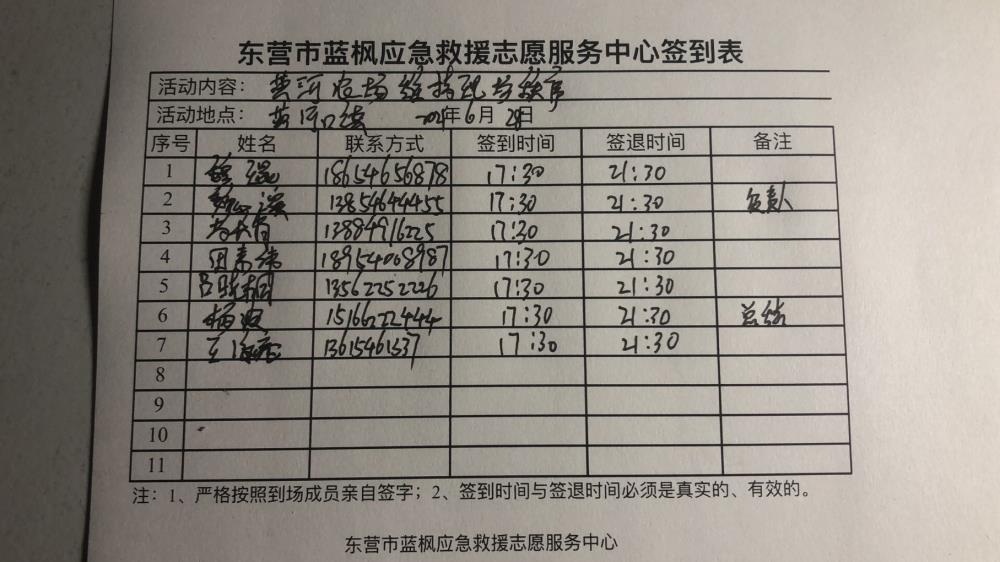 东营市蓝枫应急救援志愿服务中心签到表
活动内容： 黄河农场维持现场秩序
活动地点： 黄河口镇 年6月2日
序号 姓名 联系方式 签到时间 签退时间 备注
1 18654656878 17:30 21:30
2 13854644455 17:30 21:30 带队
3 13884916225 17:30 21:30
4 18954008987 17:30 21:30
5 13562252226 17:30 21:30
6 15166222444 17:30 21:30 总结
7 13615461537 17:30 21:30
8
9
10
11
注：1、严格按照到场成员亲自签字；2、签到时间与签退时间必须是真实的、有效的。
东营市蓝枫应急救援志愿服务中心